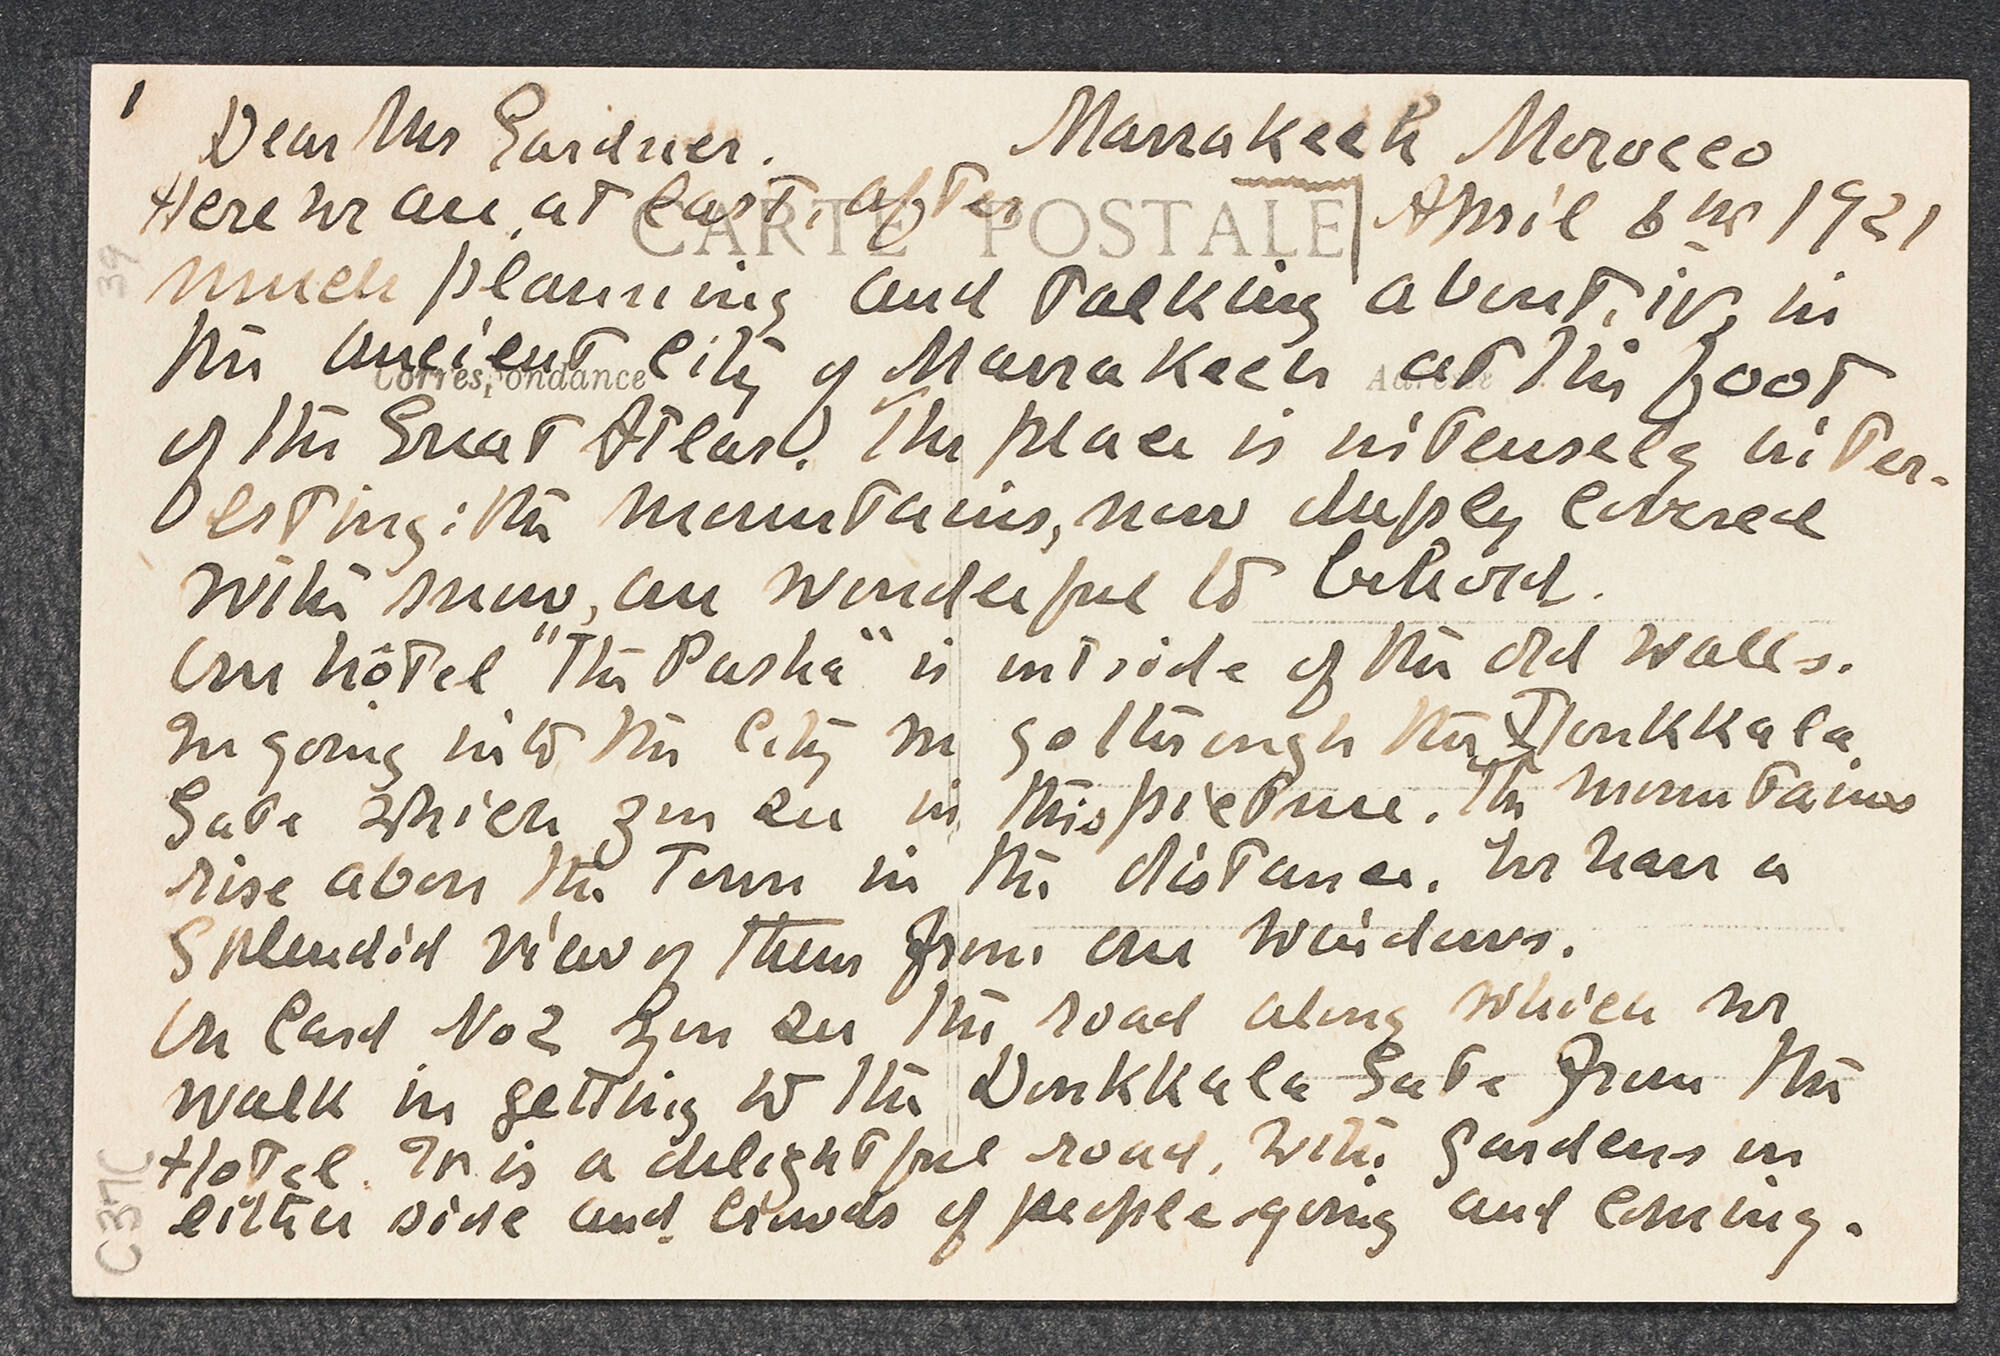 1
Dear Mrs Gardner.
Marrakech Morocco
April 6th 1921
CARTE POSTALE
Here we are, at last, after
much planning and talking about it, in
the ancient city of Marrakech at the foot
Correspondance
Adresse
of the Great Atlas. The place is intensely inter-
esting: the mountains, now deeply covered
with snow, are wonderful to behold.
Our hôtel "The Pasha" is outside of the old walls.
In going into the city we go through the Doukkala
Gate which you see in this picture. The mountains
rise above the town in the distance. We have a
splendid view of them from our windows.
On Card No 2 you see the road along which we
walk in getting to the Doukkala Gate from the
Hotel. It is a delightful road, with gardens on
either side and crowds of people going and coming.
39
C37C